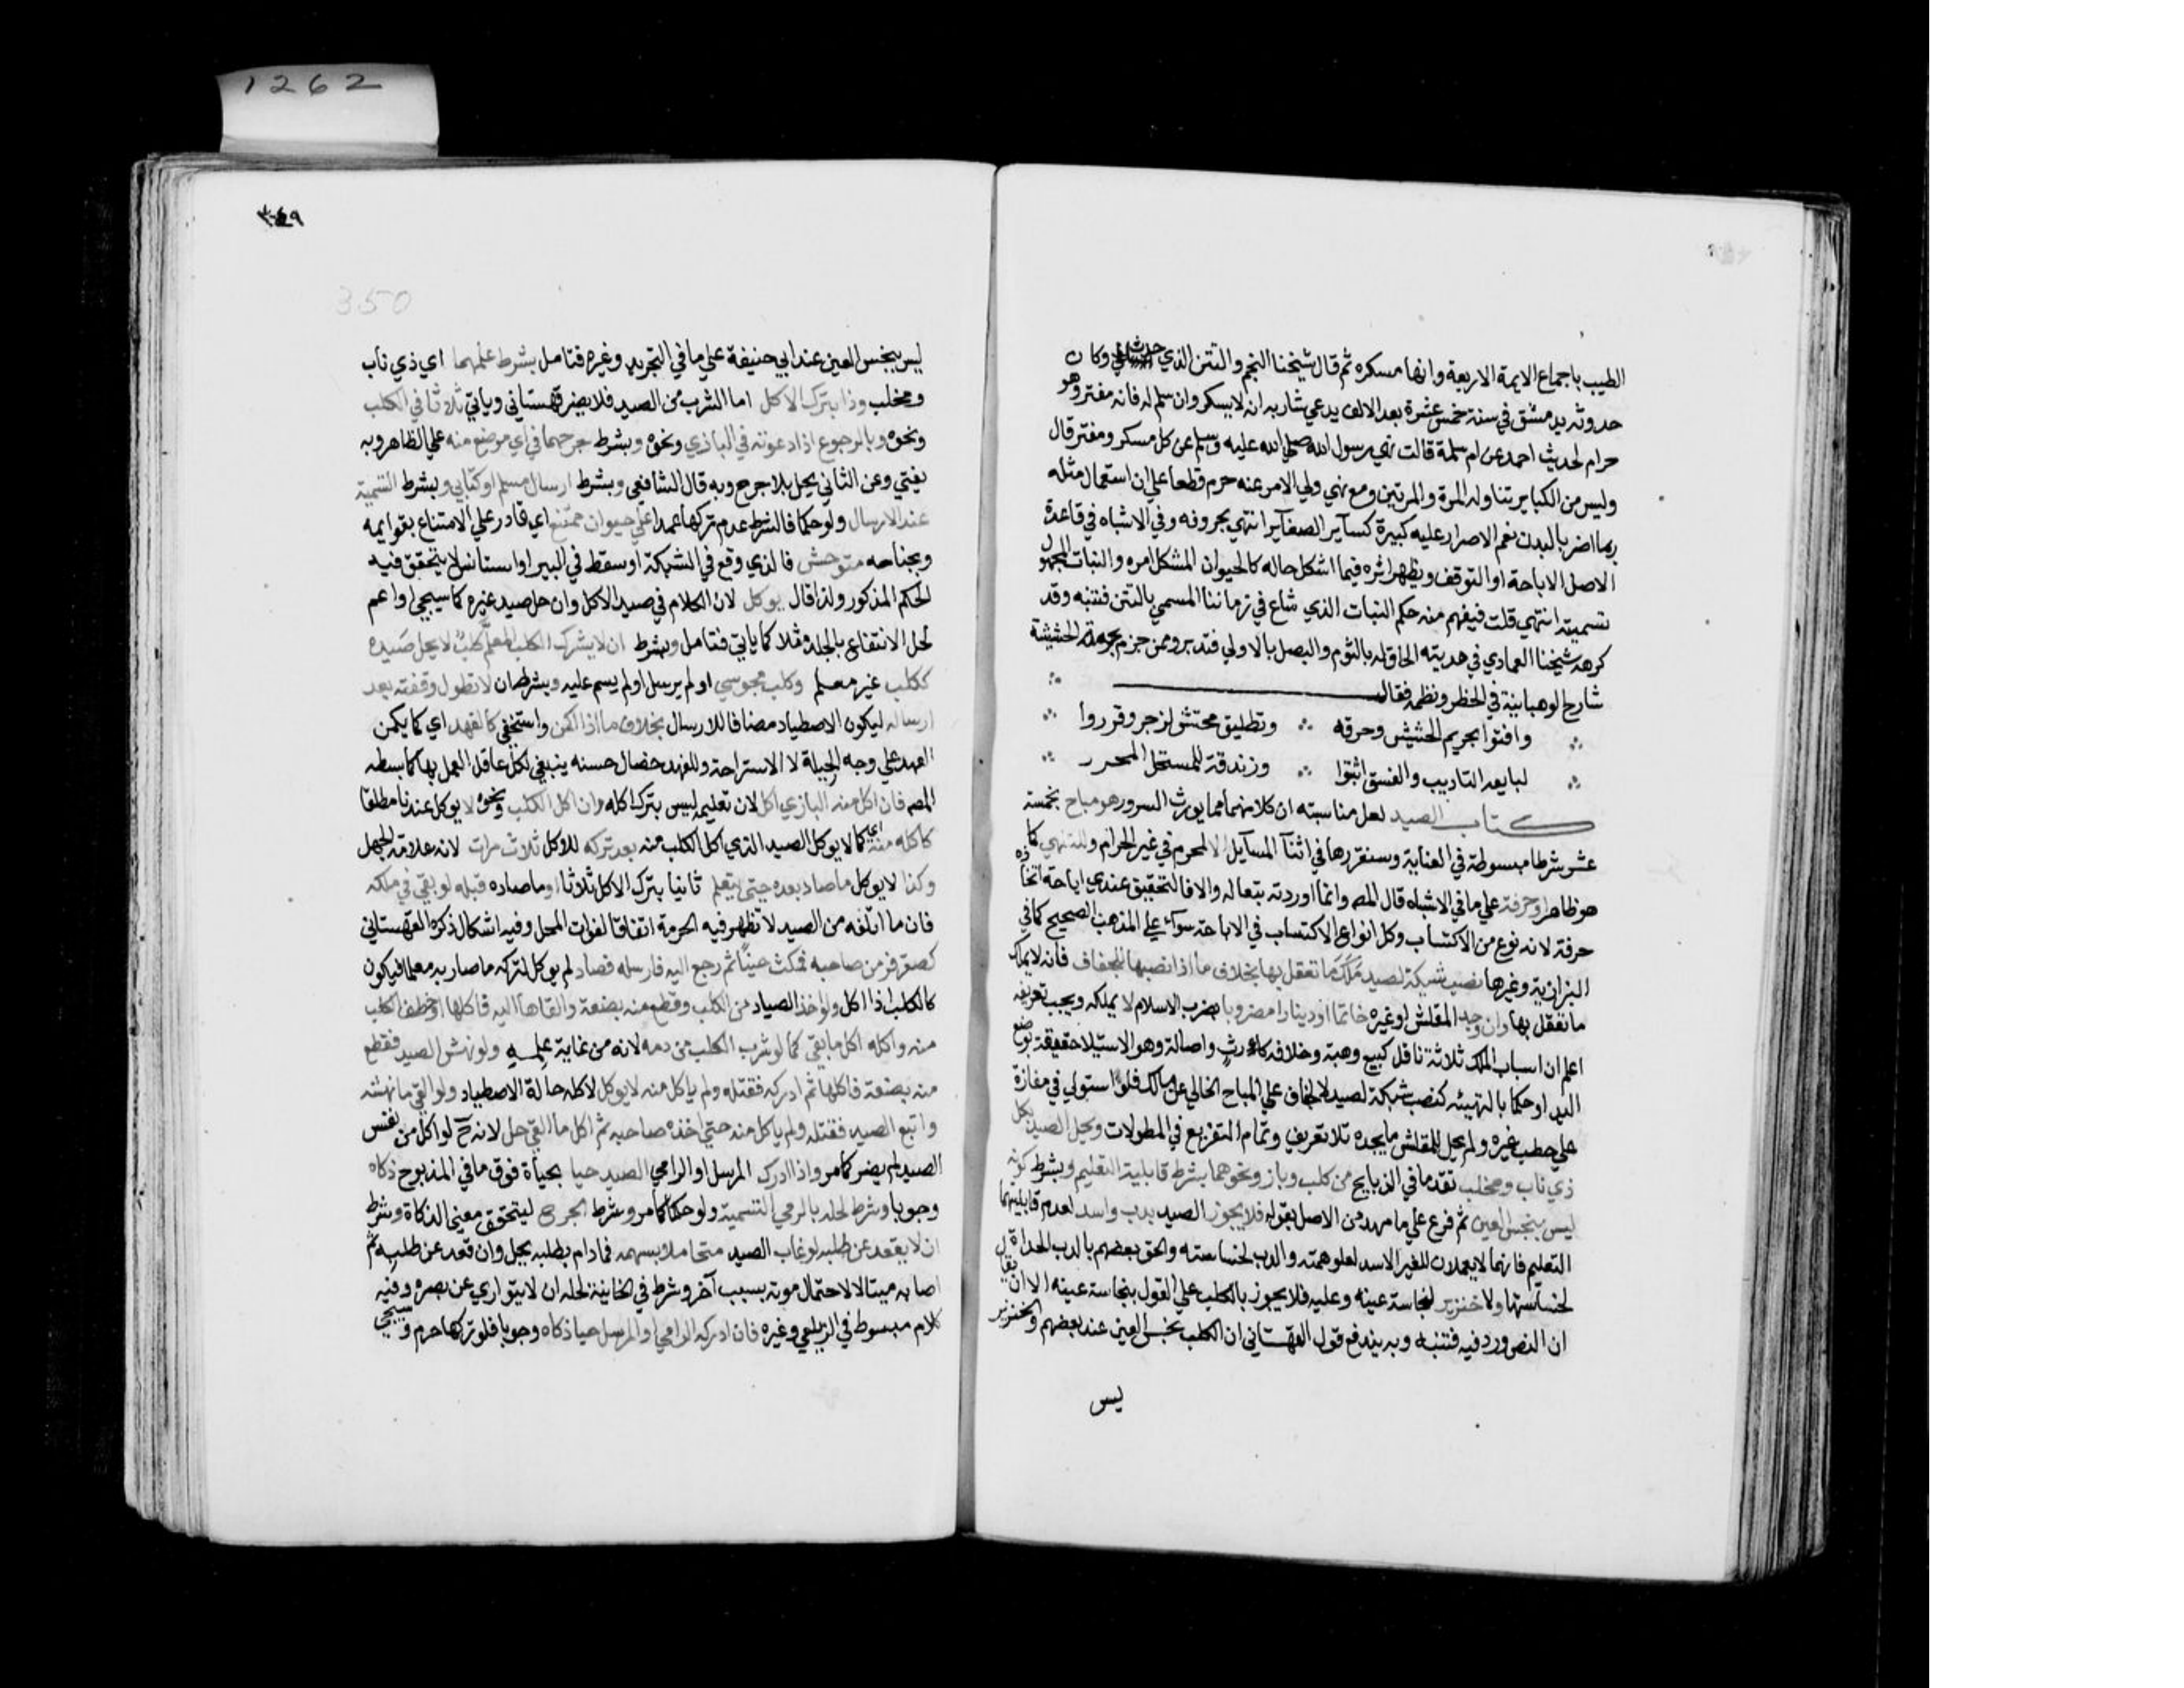 1262
الطيب باجماع الايمة الاربعة وانها مسكره ثم قال شيخنا النجم والتتن الذي حدث وكان
حدوثه بدمشق في سنة خمس عشرة بعد الالف يدعي شاربه انه لا يسكر وان سلم له فانه مفتر وهو
حرام لحديث احمد عن ام سلمة قالت نهي رسول الله صلي الله عليه وسلم عن كل مسكر ومفتر قال
وليس من الكباير تناوله المرة والمرتين ومع نهي ولي الامر عنه حرم قطعا علي ان استعمال مثله
ربما اضر بالبدن نعم الاصرار عليه كبيرة كساير الصغاير انتهي بحروفه وفي الاشباه في قاعدة
الاصل الاباحة او التوقف ويظهر اثره فيما اشكل حاله كالحيوان المشكل امره والنبات المجهول
تسميته انتهي قلت فيفهم منه حكم النبات الذي شاع في زماننا المسمي بالتتن فتنبه وقد
كرهه شيخنا العمادي في هديته الحاقا له بالثوم والبصل بالاولي فتدبر وممن جزم بحرمة الحشيشة
شارح الوهبانية في الحظر ونظمه فقال
وافتوا بتحريم الحشيش وحرقه وتطليق محتش لزجر وقرروا
لبايعه التاديب والفسق اثبتوا وزندقة للمستحل المحرر
كتاب الصيد لعل مناسبته ان كلا منهما مما يورث السرور هو مباح بخمسة
عشر شرطا مبسوطة في العناية وسنقررها في اثنآ المسآيل الا لمحرم في غير الحرام وللتلهي كما
هو ظاهر او حرفة علي ما في الاشباه قال المص وانما اوردته تبعا له والا فالتحقيق عندي اباحة اتخاذه
حرفة لانه نوع من الاكتساب وكل انواع الاكتساب في الاباحة سوآء علي المذهب الصحيح كما في
البزازية وغيرها نصب شبكة لصيد مَلَكَ ما تعقل بها بخلاف ما اذا نصبها للجفاف فانه لا يملك
ما تعقل بها وان وجد المقلش او غيره خاتما او دينارا مضروبا بضرب الاسلام لا يملكه ويجب تعريفه
اعلم ان اسباب الملك ثلاثة ناقل كبيع وهبة وخلافة كارث واصالة وهو الاستيلا حقيقة بوضع
اليد او حكما بالتهيئة كنصب شبكة لصيد لا لجفاف علي المباح الخالي عن مالك فلو استولي في مفازة
علي حطب غيره ولم يحل للمقلش ما يجده بلا تعريف وتمام التفريع في المطولات ويحل الصيد بكل
ذي ناب ومخلب تقدما في الذبايح من كلب وباز ونحوهما بشرط قابلية التعليم وبشرط كونه
ليس بنجس العين ثم فرع علي ما مهد من الاصل بقوله فلا يجوز الصيد بدب واسد لعدم قابليتهما
التعليم فانهما لا يعملان للغير الاسد لعلو همته والدب لخساسته والحق بعضهم بالدب الحداة
لخساستها ولا خنزير لنجاسة عينه وعليه فلا يجوز بالكلب علي القول بنجاسة عينه الا ان يقال
ان النص ورد فيه فتنبه وبه يندفع قول القهستاني ان الكلب نجس العين عند بعضهم والخنزير
ليس
٣٤٩
350
ليس بنجس العين عند ابي حنيفة علي ما في التجريد وغيره فتامل بشرط علمهما اي ذي ناب
ومخلب وذا بترك الاكل اما الشرب من الصيد فلا يضر قهستاني وياتي ثلاثا في الكلب
ونحوه وبالرجوع اذا دعوته في البازي ونحوه وبشرط جرحهما في اي موضع منه علي الظاهر وبه
يفتي وعن الثاني يحل بلا جرح وبه قال الشافعي وبشرط ارسال مسلم او كتابي وبشرط التسمية
عند الارسال ولو حكما فالشرط عدم تركها عمدا علي حيوان ممتنع اي قادر علي الامتناع بقوايمه
وبجناحه متوحش فالذي وقع في الشبكة او سقط في البير او استانس لا يتحقق فيه
الحكم المذكور ولذا قال يوكل لان الكلام في صيد الاكل وان حل صيد غيره كما سيجي او اعم
لحل الانتفاع بالجلد مثلا كما ياتي فتامل وبشرط ان لا يشرك الكلب المعلم كلب لا يحل صيده
ككلب غير معلم وكلب مجوسي او لم يرسل او لم يسم عليه وبشرط ان لا تطول وقفته بعد
ارساله ليكون الاصطياد مضافا للارسال بخلاف ما اذا اكمن واستخفي كالفهد اي كما يكمن
الفهد علي وجه الحيلة لا الاستراحة وللفهد خصال حسنه ينبغي لكل عاقل العمل بها كما بسطه
المص فان اكل منه البازي اكل لان تعليمه ليس بترك اكله وان اكل الكلب ونحوه لا يوكل عندنا مطلقا
كاكله منه اي كما لا يوكل الصيد الذي اكل الكلب منه بعد تركه للاكل ثلاث مرات لانه علامة الجهل
وكذا لا يوكل ما صاد بعده حتي يتعلم ثانيا بترك الاكل ثلاثا او ما صاده قبله لو بقي في ملكه
فان ما اتلفه من الصيد لا تظهر فيه الحرمة اتفاقا لفوات المحل وفيه اشكال ذكره القهستاني
كصقر فر من صاحبه فمكث حينا ثم رجع اليه فارسله فصاد لم يوكل لتركه ما صار به معلما فيكون
كالكلب اذا اكل ولو اخذ الصياد من الكلب وقطع منه بضعة والقاها اليه فاكلها او خطف الكلب
منه واكله اكل ما بقي كما لو شرب الكلب من دمه لانه من غاية علمه ولو نهش الصيد فقطع
منه بضعة فاكلها ثم ادركه فقتله ولم ياكل منه لا يوكل لاكله حالة الاصطياد ولو القي ما نهشه
واتبع الصيد فقتله ولم ياكل منه حتي اخذه صاحبه ثم اكل ما القي حل لانه ح لو اكل من نفس
الصيد لم يضر كما مر واذا ادرك المرسل او الرامي الصيد حيا بحيأة فوق ما في المذبوح ذكاه
وجوبا وشرط لحله بالرمي التسمية ولو حكما كما مر وشرط الجرح ليتحقق معني الذكاة وشرط
ان لا يقعد عن طلبه لو غاب الصيد متحاملا بسهمه فما دام بطلبه يحل وان قعد عن طلبه ثم
اصابه ميتا لا لاحتمال موته بسبب آخر وشرط في الخانية لحله ان لا يتواري عن بصره وفيه
كلام مبسوط في الزيلعي وغيره فان ادركه الرامي او المرسل حيا ذكاه وجوبا فلو تركها حرم وسيجي